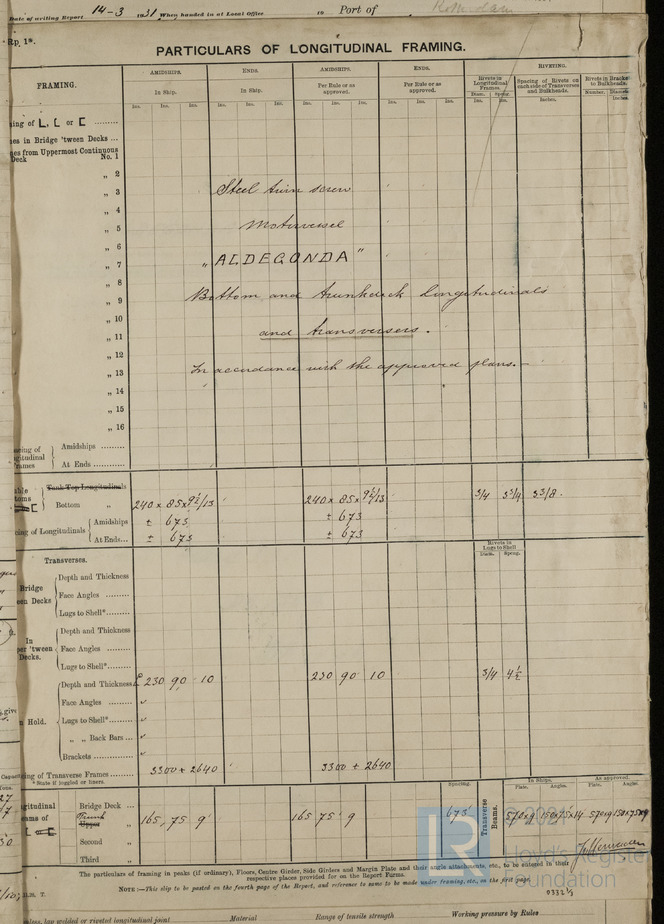 Date of writing Report 14-3 1931 When handed in at Local Office 19 Port of Rotterdam
Rp. 1*.
PARTICULARS OF LONGITUDINAL FRAMING.
FRAMING. AMIDSHIPS. ENDS. AMIDSHIPS. ENDS. RIVETING.
In Ship. In Ship. Per Rule or as approved. Per Rule or as approved. Rivets in Longitudinal Frames. Spacing of Rivets on each side of Transverses and Bulkheads. Rivets in Brackets to Bulkheads.
Ins. Ins. Ins. Ins. Ins. Ins. Ins. Ins. Ins. Ins. Ins. Ins. Diam. Spcng. Ins. Ins. Inches. Number. Diameter Inches.
ing of L, L or C
es in Bridge 'tween Decks ...
es from Uppermost Continuous Deck No. 1
„ 2
„ 3 Steel twin screw
„ 4
„ 5 Motorvessel
„ 6
„ 7 "ALDEGONDA"
„ 8
„ 9 Bottom and trunkdeck longitudinals
„ 10
„ 11 and transversers.
„ 12
„ 13 In accordance with the approved plans.-
„ 14
„ 15
„ 16
acing of gitudinal rames Amidships
At Ends
Tank Top Longitudinals
Bottom „ 240 x 85 x 9½/13 240 x 85 x 9½/13 3/4 5 3/4 3 3/8.
ing of Longitudinals Amidships ± 673 ± 673
At Ends... ± 673 ± 673
Transverses. Rivets in Lugs to Shell Diam. Spcng.
Bridge en Decks Depth and Thickness
Face Angles
Lugs to Shell*
In per 'tween Decks. Depth and Thickness
Face Angles
Lugs to Shell*
n Hold. Depth and Thickness 230 90 10 230 90 10 3/4 4½
Face Angles
Lugs to Shell*
„ „ Back Bars ...
Brackets
ing of Transverse Frames 3300 + 2640 3300 + 2640
*State if joggled or liners.
Spacing. In Ships. As approved.
Plate. Angles. Plate. Angle.
gitudinal eams of Bridge Deck ...
Trunk Upper „ 165, 75 9 165 75 9 673 Transverse Beams. 570x9 150x75x14 570x9 150x75x9
Second „
Third „
The particulars of framing in peaks (if ordinary), Floors, Centre Girder, Side Girders and Margin Plate and their angle attachments, etc., to be entered in their
respective places provided for on the Report Forms.
NOTE:—This slip to be posted on the fourth page of the Report, and reference to same to be made under framing, etc., on the first page.
© 2021
Lloyd's Register
Foundation
T. 0332⅓
less, law welded or riveted longitudinal joint Material Range of tensile strength Working pressure by Rules